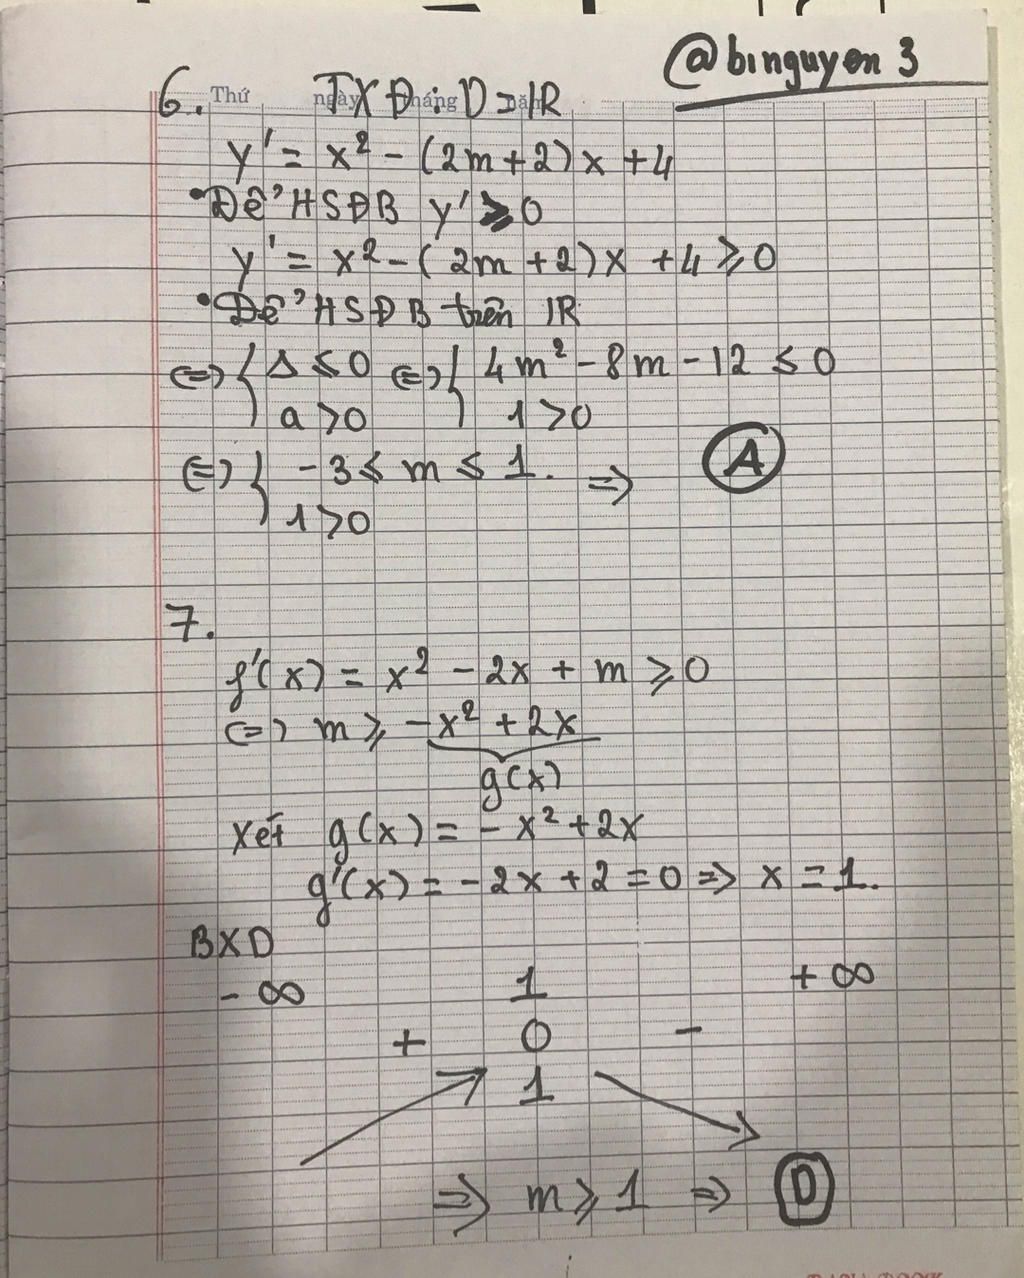 @binguyen3
Thứ ngày tháng năm
6. TXĐ: D = ℝ
y' = x² - (2m+2)x + 4
• Để HSĐB y' ≥ 0
y' = x² - (2m+2)x + 4 ≥ 0
• Để HSĐB trên ℝ
⇔ { Δ ≤ 0 ⇔ { 4m² - 8m - 12 ≤ 0
a > 0 1 > 0
⇔ { -3 ≤ m ≤ 1. ⇒ A
1 > 0
7.
f'(x) = x² - 2x + m ≥ 0
⇔ m ≥ -x² + 2x
g(x)
Xét g(x) = -x² + 2x
g'(x) = -2x + 2 = 0 ⇒ x = 1.
BXD
-∞ 1 +∞
+ 0 -
1
⇒ m ≥ 1 ⇒ D